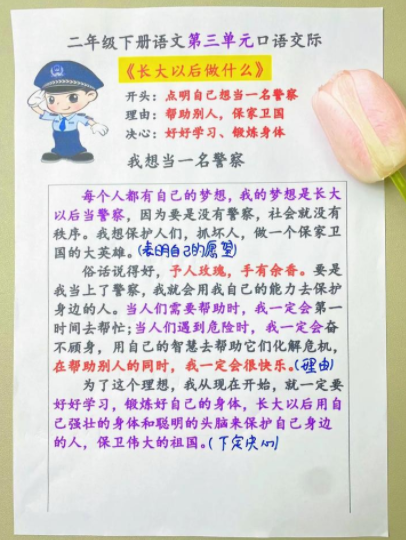 二年级下册语文第三单元口语交际
《长大以后做什么》
开头：点明自己想当一名警察
理由：帮助别人，保家卫国
决心：好好学习、锻炼身体
我想当一名警察
每个人都有自己的梦想，我的梦想是长大
以后当警察，因为要是没有警察，社会就没有
秩序。我想保护人们，抓坏人，做一个保家卫
国的大英雄。(表明自己的愿望)
俗话说得好，予人玫瑰，手有余香。要是
我当上了警察，我就会用我自己的能力去保护
身边的人。当人们需要帮助时，我一定会第一
时间去帮忙；当人们遇到危险时，我一定会奋
不顾身，用自己的智慧去帮助它们化解危机，
在帮助别人的同时，我一定会很快乐。(理由)
为了这个理想，我从现在开始，就一定要
好好学习，锻炼好自己的身体，长大以后用自
己强壮的身体和聪明的头脑来保护自己身边
的人，保卫伟大的祖国。(下定决心)